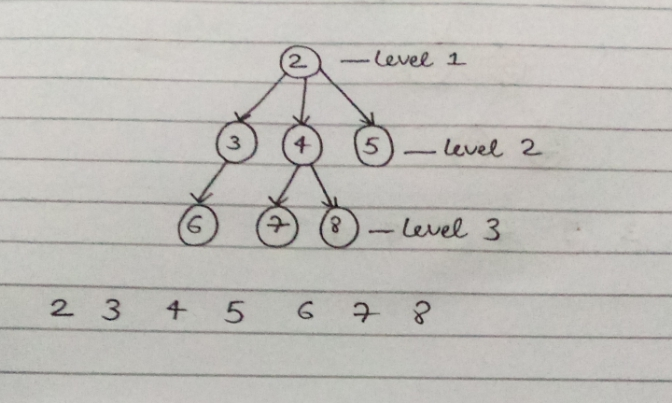 2 — Level 1
3 4 5 — Level 2
6 7 8 — Level 3
2 3 4 5 6 7 8